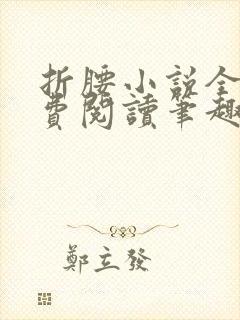 折腰小說全
費閱讀筆趣
鄭立發